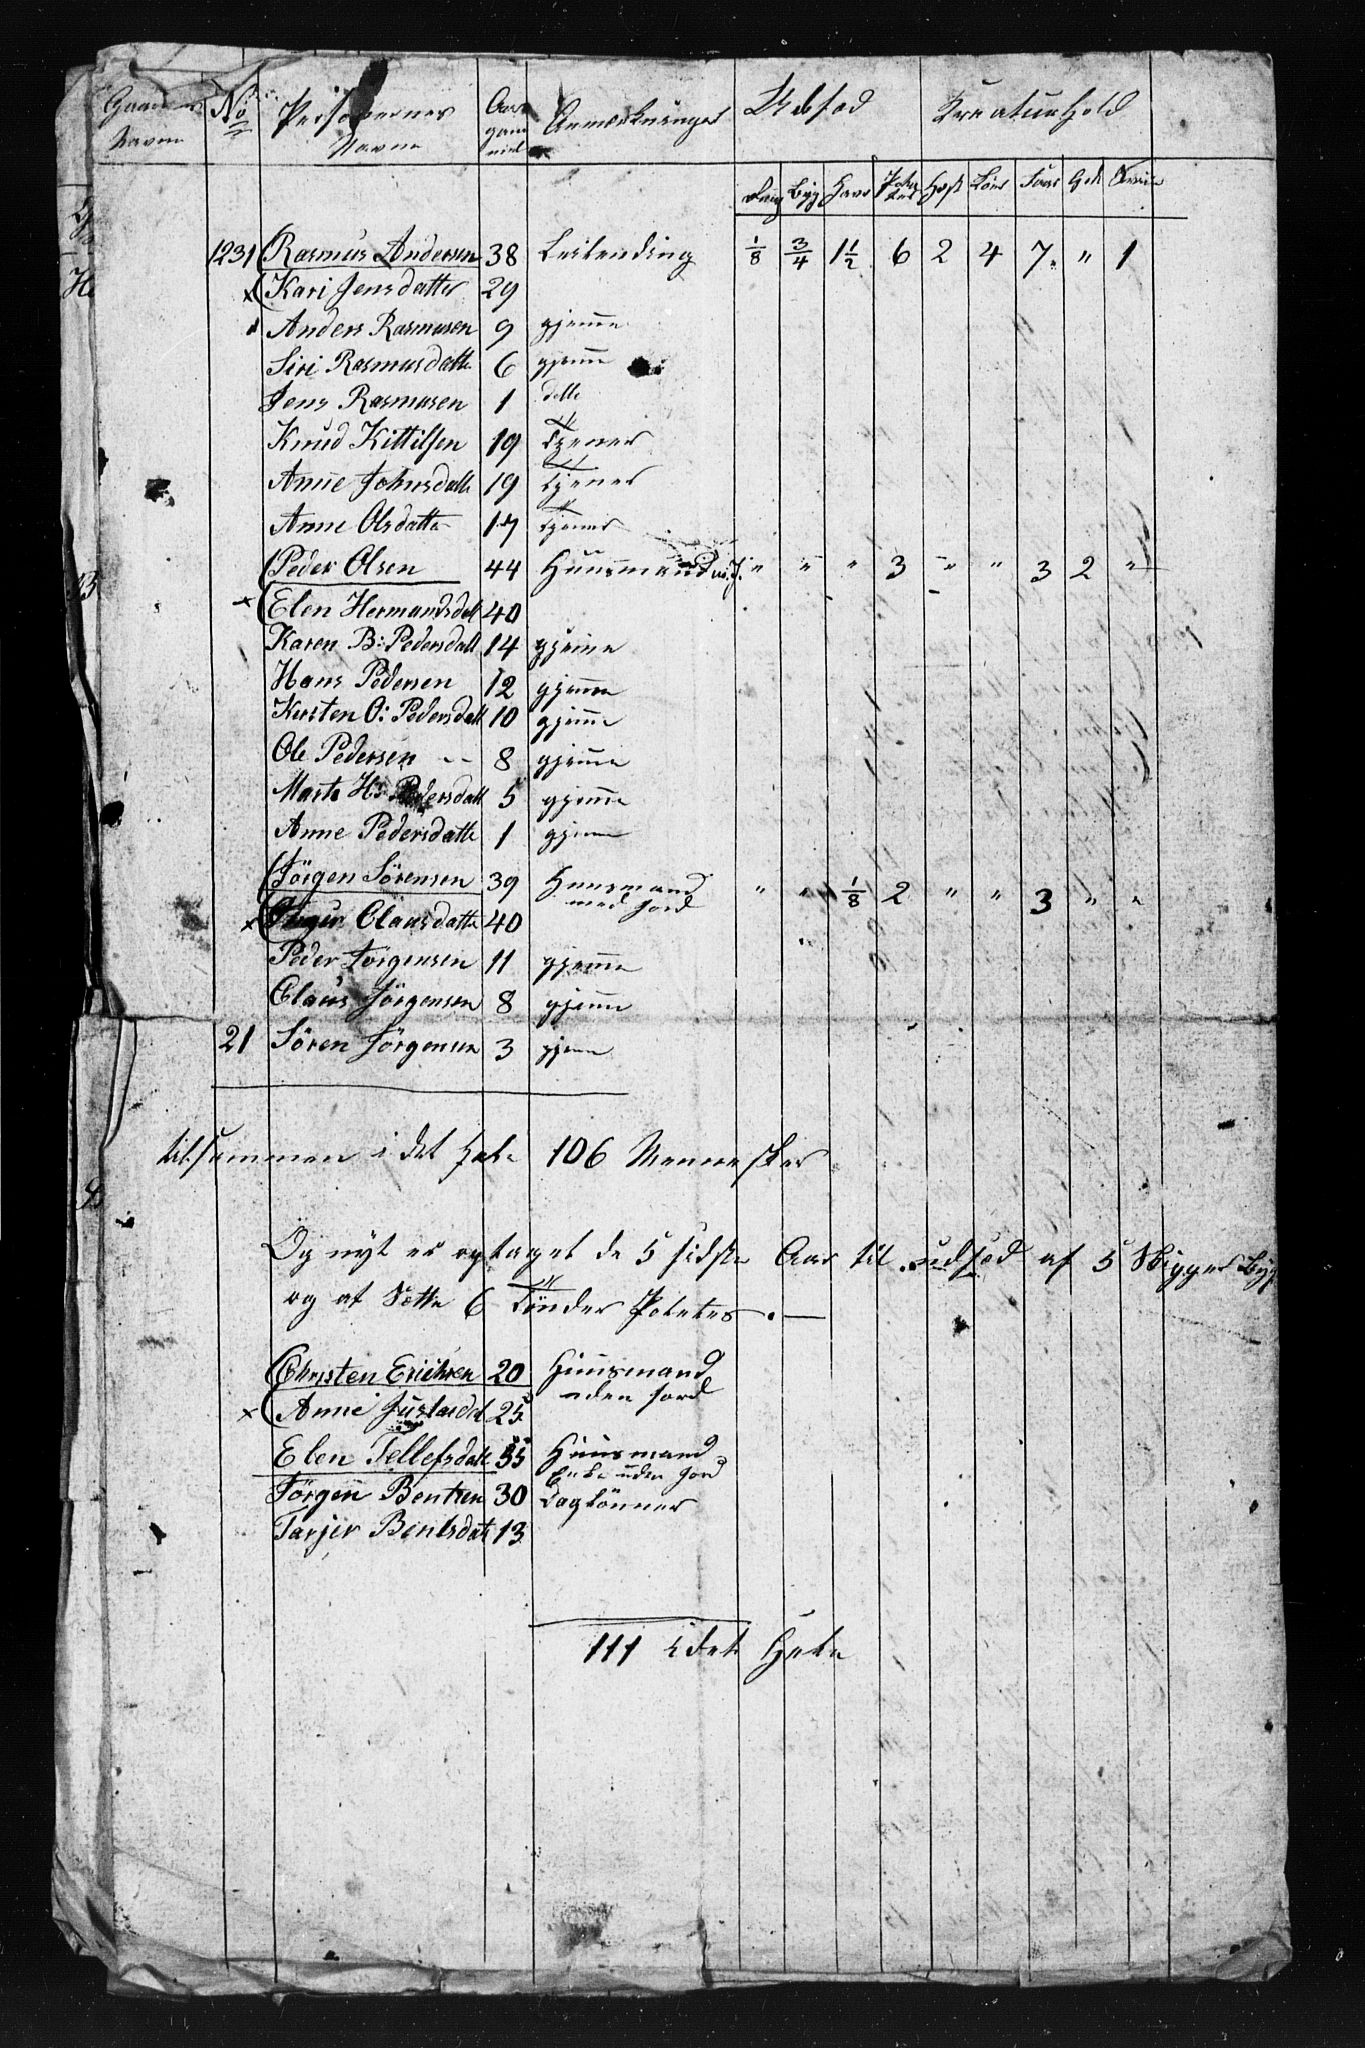 Gaardens Navne No Personernes Navne Aar gammel Anmerkninger Udsæd Kreaturhold
Rug Byg Havr Poteter Hest Kiør Faar Geed Sviin
1231 Rasmus Andersen 38 Leilending 1/8 3/4 1 1/2 6 2 4 7 " 1
x Kari Jensdatter 29
Anders Rasmusen 9 hjemme
Siri Rasmusdatte 6 hjemme
Jens Rasmusen 1 dette
Knud Kittilsen 19 Tjener
Anne Johnsdatte 19 Tjener
Anne Olsdatter 17 Tjener
Peder Olsen 44 Huusmand m. J. " " " 3 " " 3 2 "
x Elen Hermansdat 40
Karen B: Pedersdatt 14 hjeme
Hans Pedersen 12 hjemme
Kirsten O: Pedersdatt 10 hjemme
Ole Pedersen -- 8 hjemme
Marte H: Pedersdatt 5 hjemme
Anne Pedersdatte 1 hjeme
Jörgen Sörensen 39 Huusmand med Jord " " 1/8 2 " " 3 " "
x Clausdatte 40
Peder Jorgensen 11 hjemme
Claus Jörgensen 8 hjemme
21 Sören Jörgensen 3 hjeme
tilsammen i det Hele 106 Mennesker
Og nyt er optaget de 5 sidste Aar til udsæd af 5 Skipper Byg
og at Sætte 6 Tönder Poteter. —
Christen Erichsen 20 Huusmand
x Anne 25 uden Jord
Elen Tellefsdatt 55 Huusmand
Enke uden Jord
Jörgen Bentsen 30 Daglönner
Tarjer Bentsdatt 13
111 i det Hele